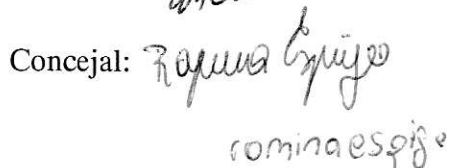 Concejal: Romina Espigo
rominaespigo